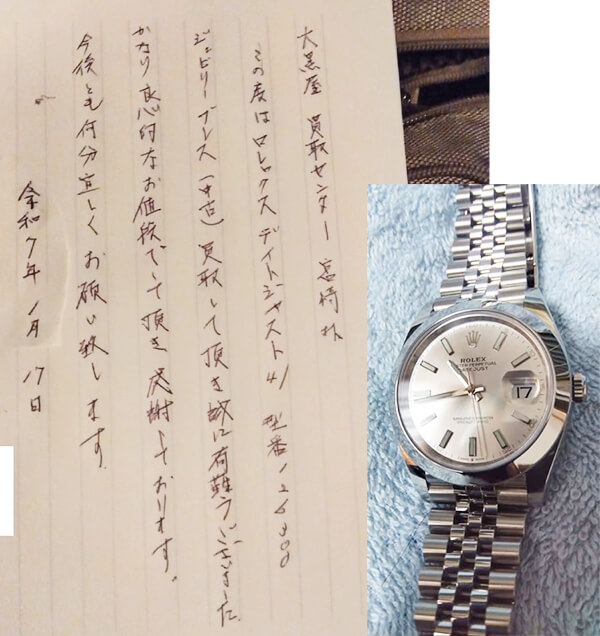 大黒屋 買取センター 宮崎様
この度はロレックス デイトジャスト41 型番126300
ジュビリーブレス (中古) 買取して頂き誠に有難うございました。
かなり良心的なお値段でして頂き感謝しております。
今後とも何分宜しくお願い致します。
令和7年1月17日
ROLEX
OYSTER PERPETUAL
DATEJUST
17